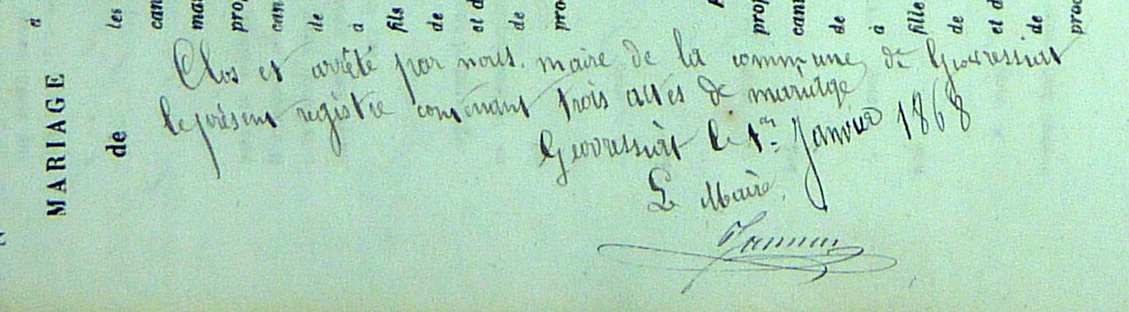 Clos et arrêté par nous, maire de la commune, de Geovressiat
le présent registre contenant trois actes de mariage
Geovressiat le 1er Janvier 1868
Le Maire
MARIAGE
de
les
can
mar
prop
can
de
à
fils
de
et d
de
pro
prop
can
de
à
fille
de
et d
de
proc